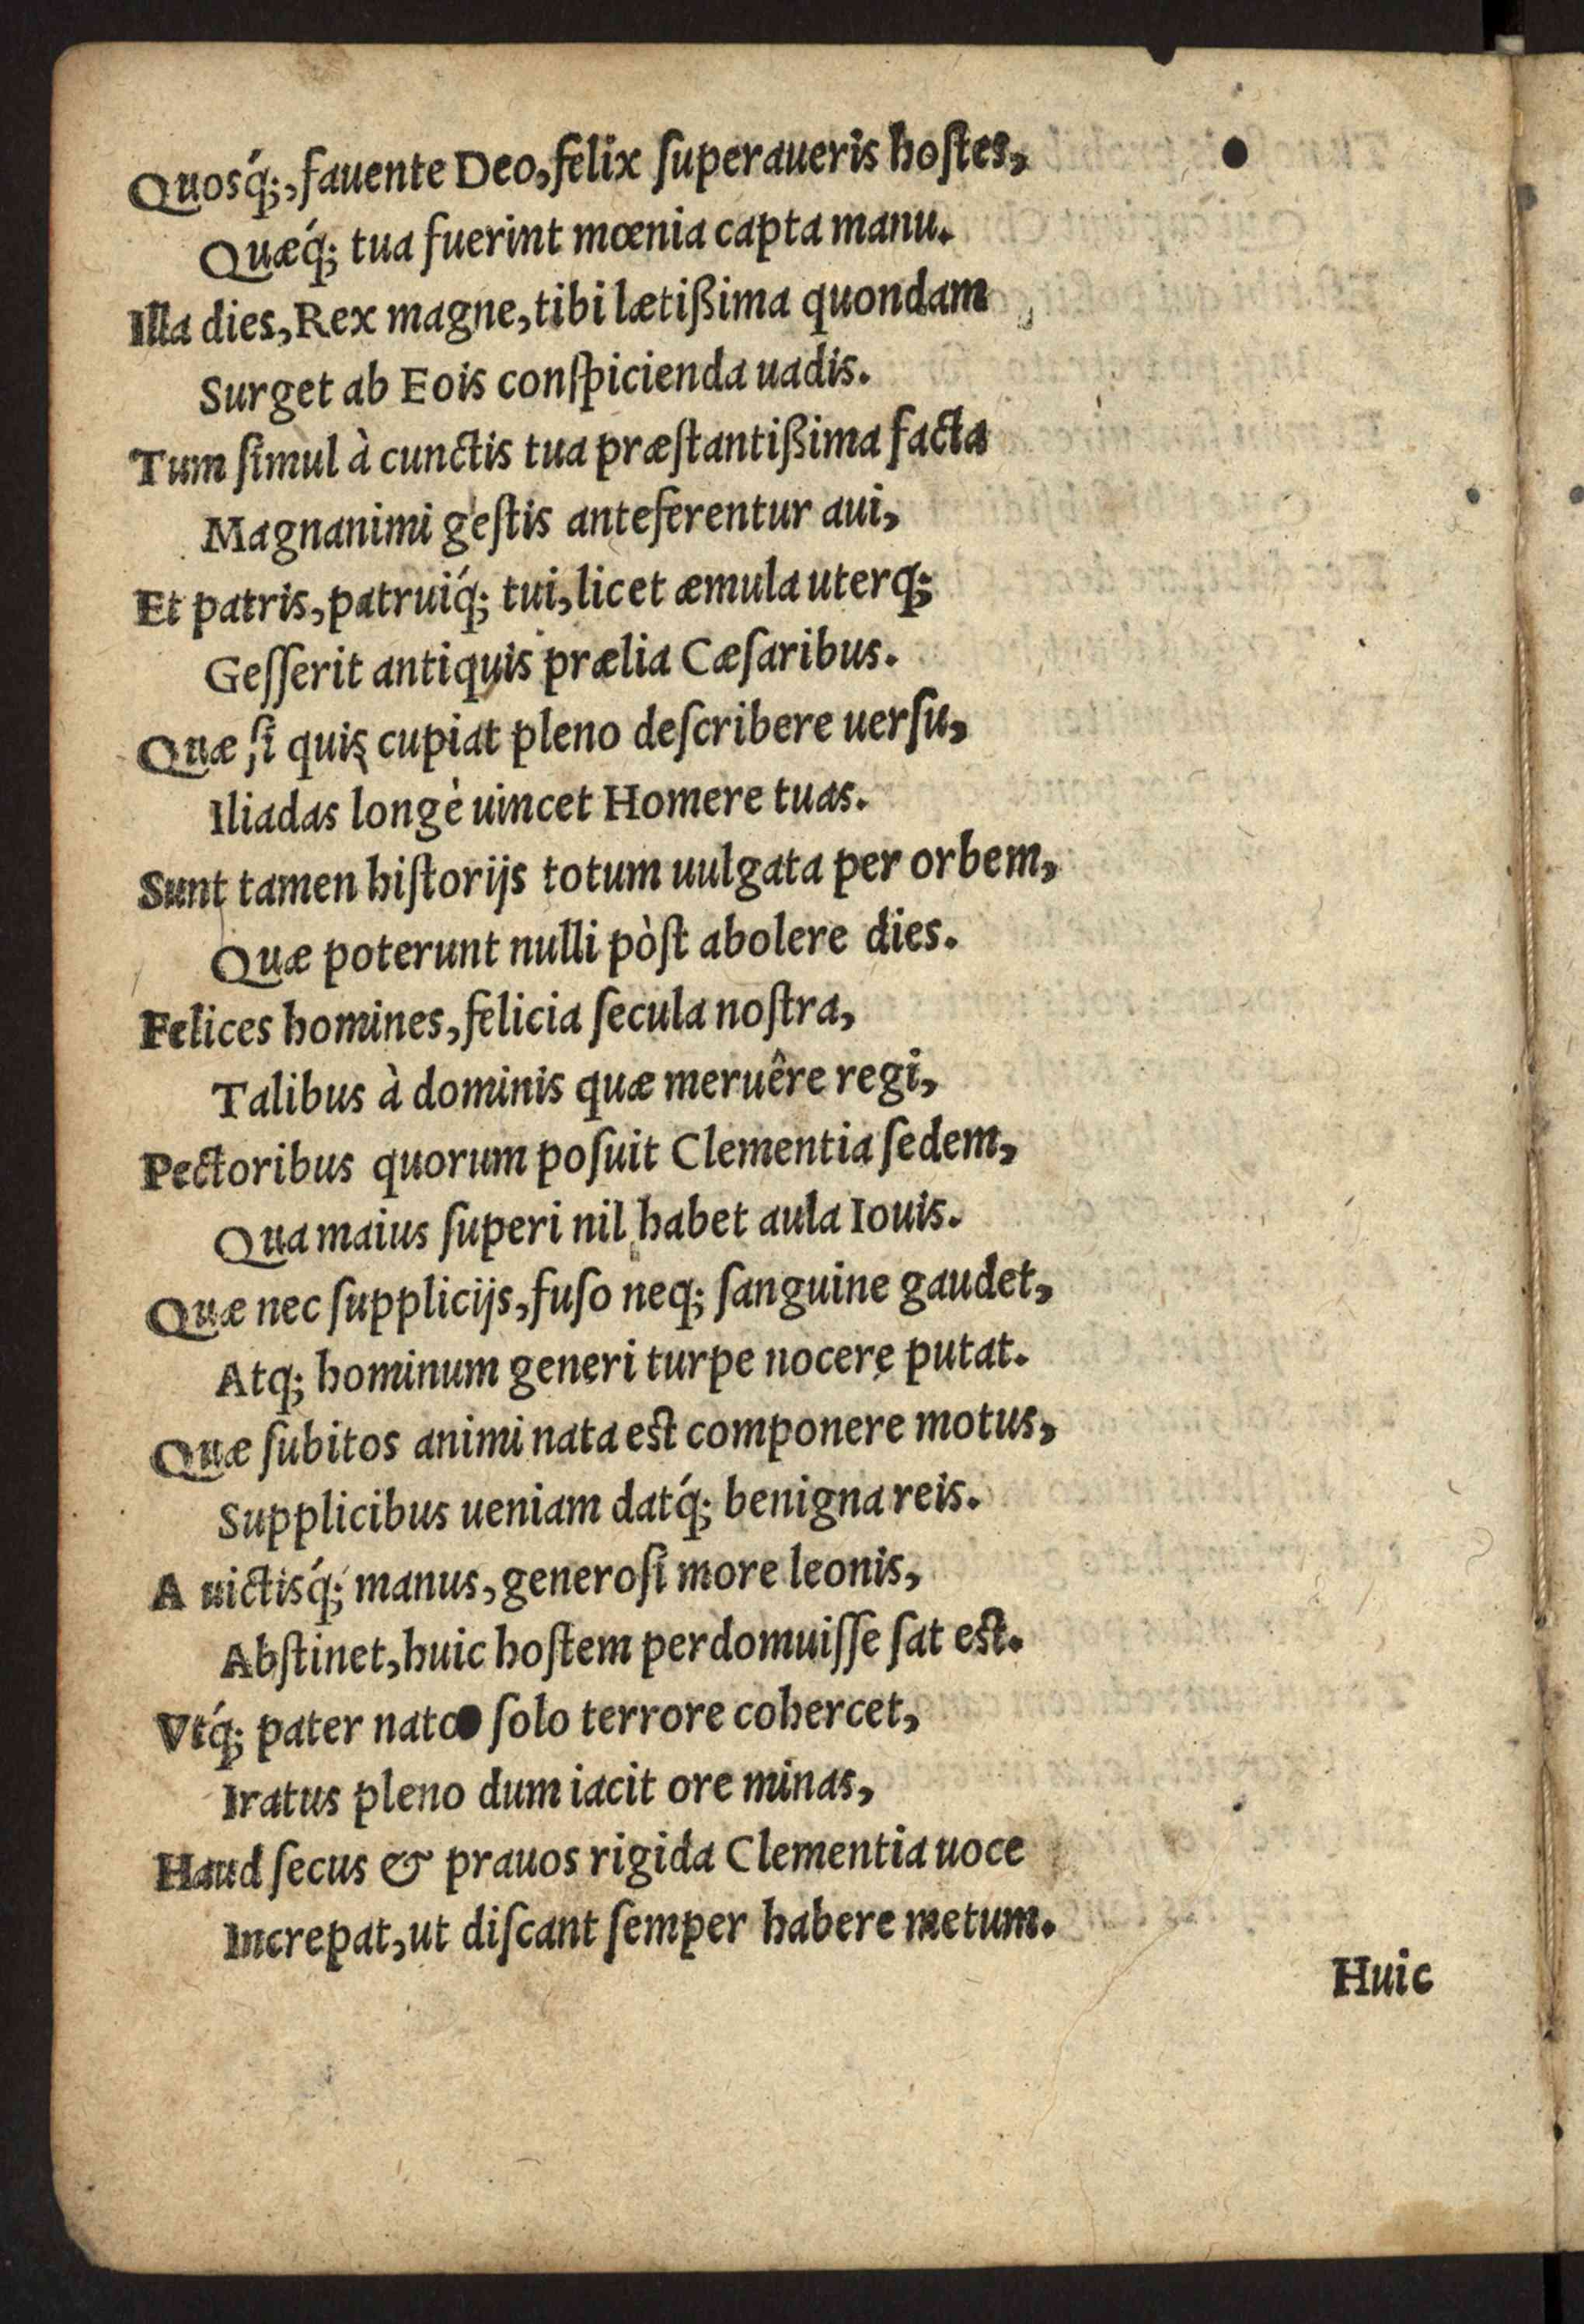 Quosq́;, fauente Deo, felix ſuperaueris hoſtes,
Quæq́; tua fuerint mœnia capta manu.
Illa dies, Rex magne, tibi lætißima quondam
Surget ab Eois conſpicienda uadis.
Tum ſimul à cunctis tua præſtantißima facta
Magnanimi geſtis anteferentur aui,
Et patris, patruiq́; tui, licet æmula uterq;
Geſſerit antiquis prælia Cæſaribus.
Quæ ſi quis cupiat pleno deſcribere uerſu,
Iliadas longè uincet Homere tuas.
Sunt tamen hiſtorijs totum uulgata per orbem,
Quæ poterunt nulli pòſt abolere dies.
Felices homines, felicia ſecula noſtra,
Talibus à dominis quæ meruêre regi,
Pectoribus quorum poſuit Clementia ſedem,
Qua maius ſuperi nil habet aula Iouis.
Quæ nec ſupplicijs, fuſo neq; ſanguine gaudet,
Atq; hominum generi turpe nocere putat.
Quæ ſubitos animi nata est componere motus,
Supplicibus ueniam datq́; benigna reis.
A uictisq́; manus, generoſi more leonis,
Abſtinet, huic hoſtem perdomuiſſe ſat est.
Vtq́; pater natos ſolo terrore cohercet,
Iratus pleno dum iacit ore minas,
Haud ſecus & prauos rigida Clementia uoce
Increpat, ut diſcant ſemper habere metum.
Huic